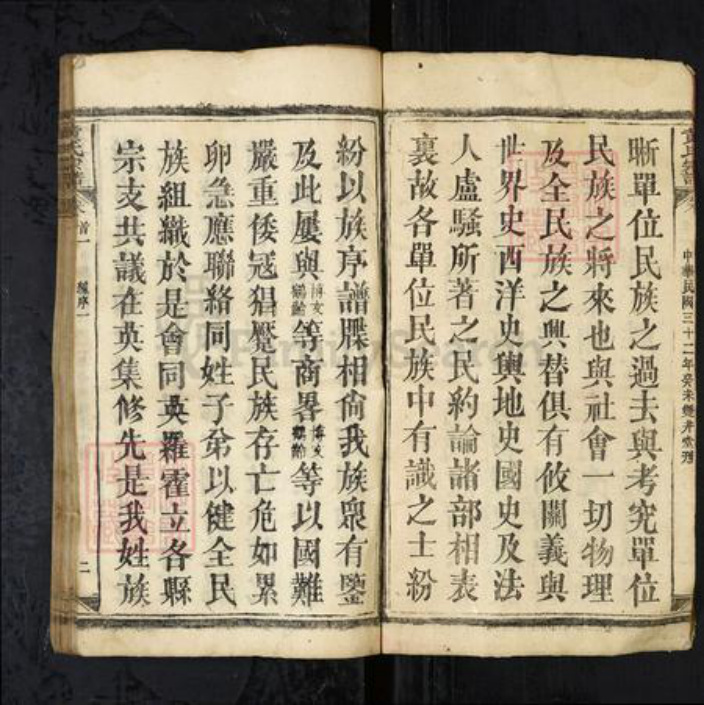 中華民國三十二年癸未
晰單位民族之過去與考究單位
民族之將來也與社會一切物理
及全民族之興替俱有攸關義與
世界史西洋史輿地史國史及法
人盧騷所著之民約論諸部相表
裏故各單位民族中有識之士紛
紛以族序譜牒相尙我族衆有鑒
及此屢與博友鶴齡等商畧博友鶴齡等以國難
嚴重倭寇猖蹷民族存亡危如累
卵急應聯絡同姓子弟以健全民
族組織於是會同英羅霍立各縣
宗支共議在英集修先是我姓族
卷首一 二
FamilySearch